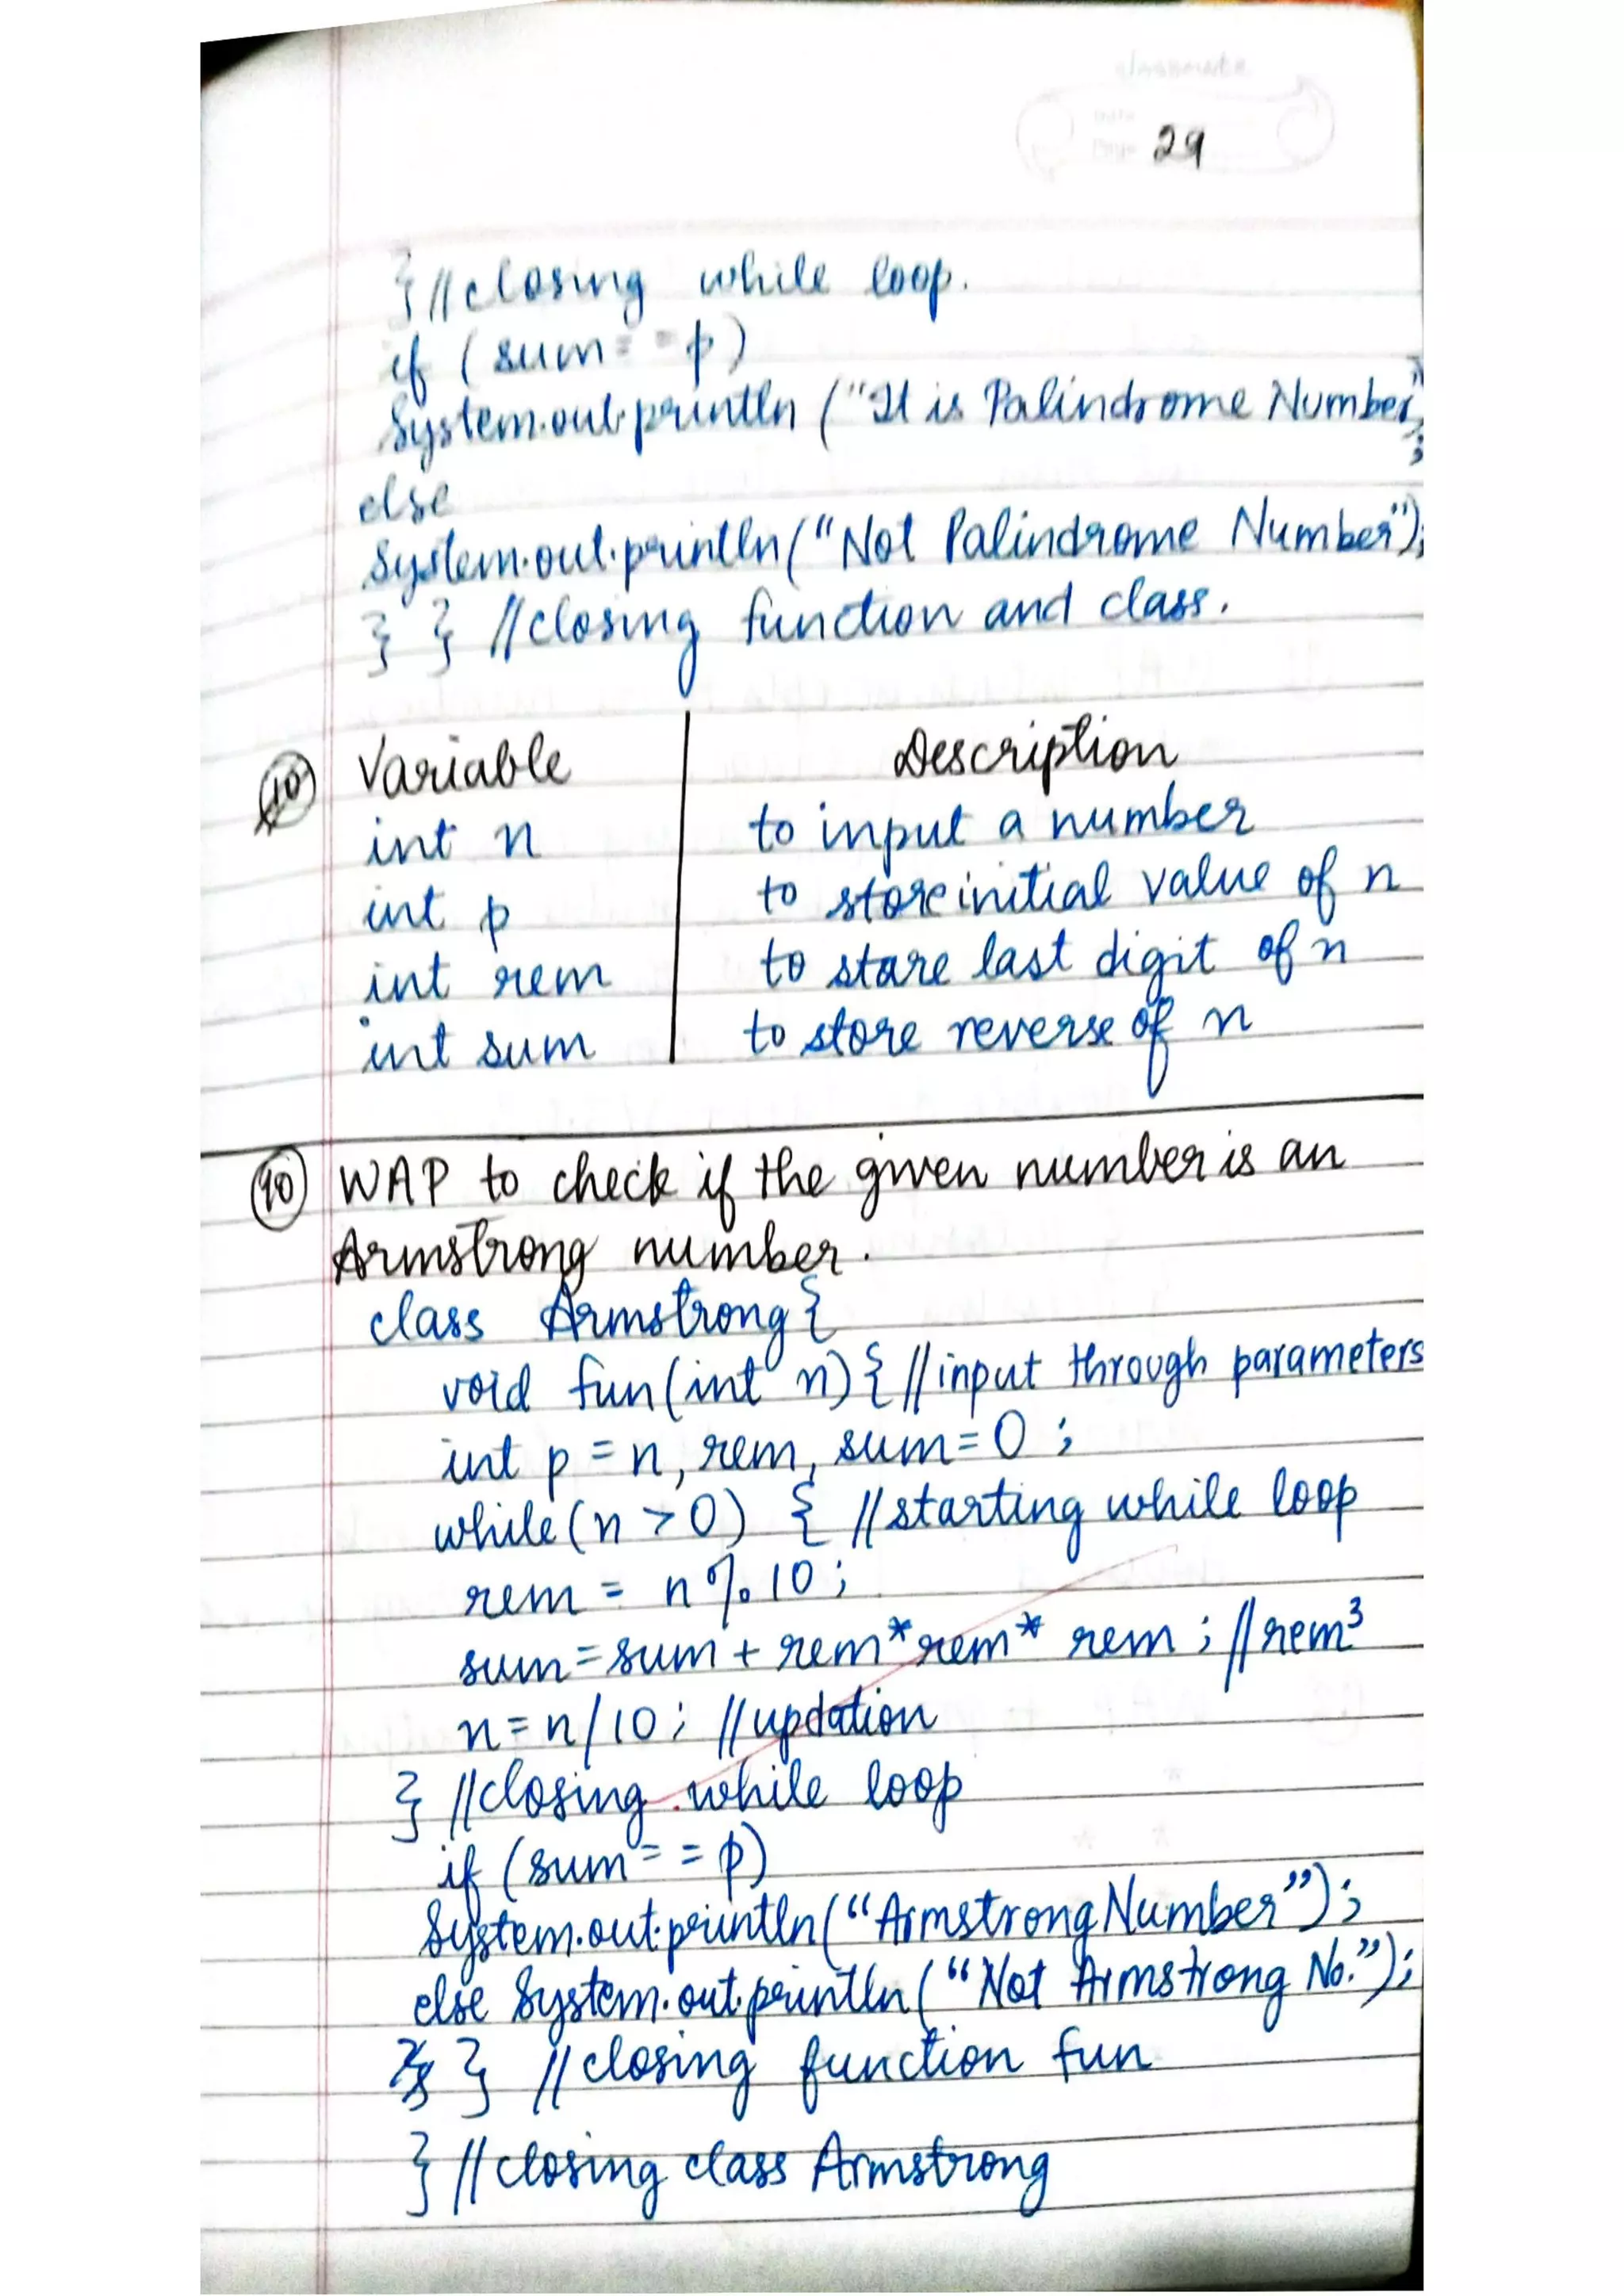 classmate
Date
Page 29
} //closing while loop.
if (sum = = p)
System.out.println ("It is Palindrome Number")
;
else
System.out.println("Not Palindrome Number");
} } //closing function and class.
10 Variable Description
int n to input a number
int p to store initial value of n
int rem to store last digit of n
int sum to store reverse of n
10 WAP to check if the given number is an
Armstrong number.
class Armstrong {
void fun(int n) { //input through parameters
int p = n, rem, sum = 0 ;
while (n > 0) { //starting while loop
rem = n % 10 ;
sum = sum + rem * rem * rem ; //rem³
n = n/10 ; //updation
} //closing while loop
if (sum = = p)
System.out.println("Armstrong Number");
else System.out.println("Not Armstrong No.");
} //closing function fun
} //closing class Armstrong